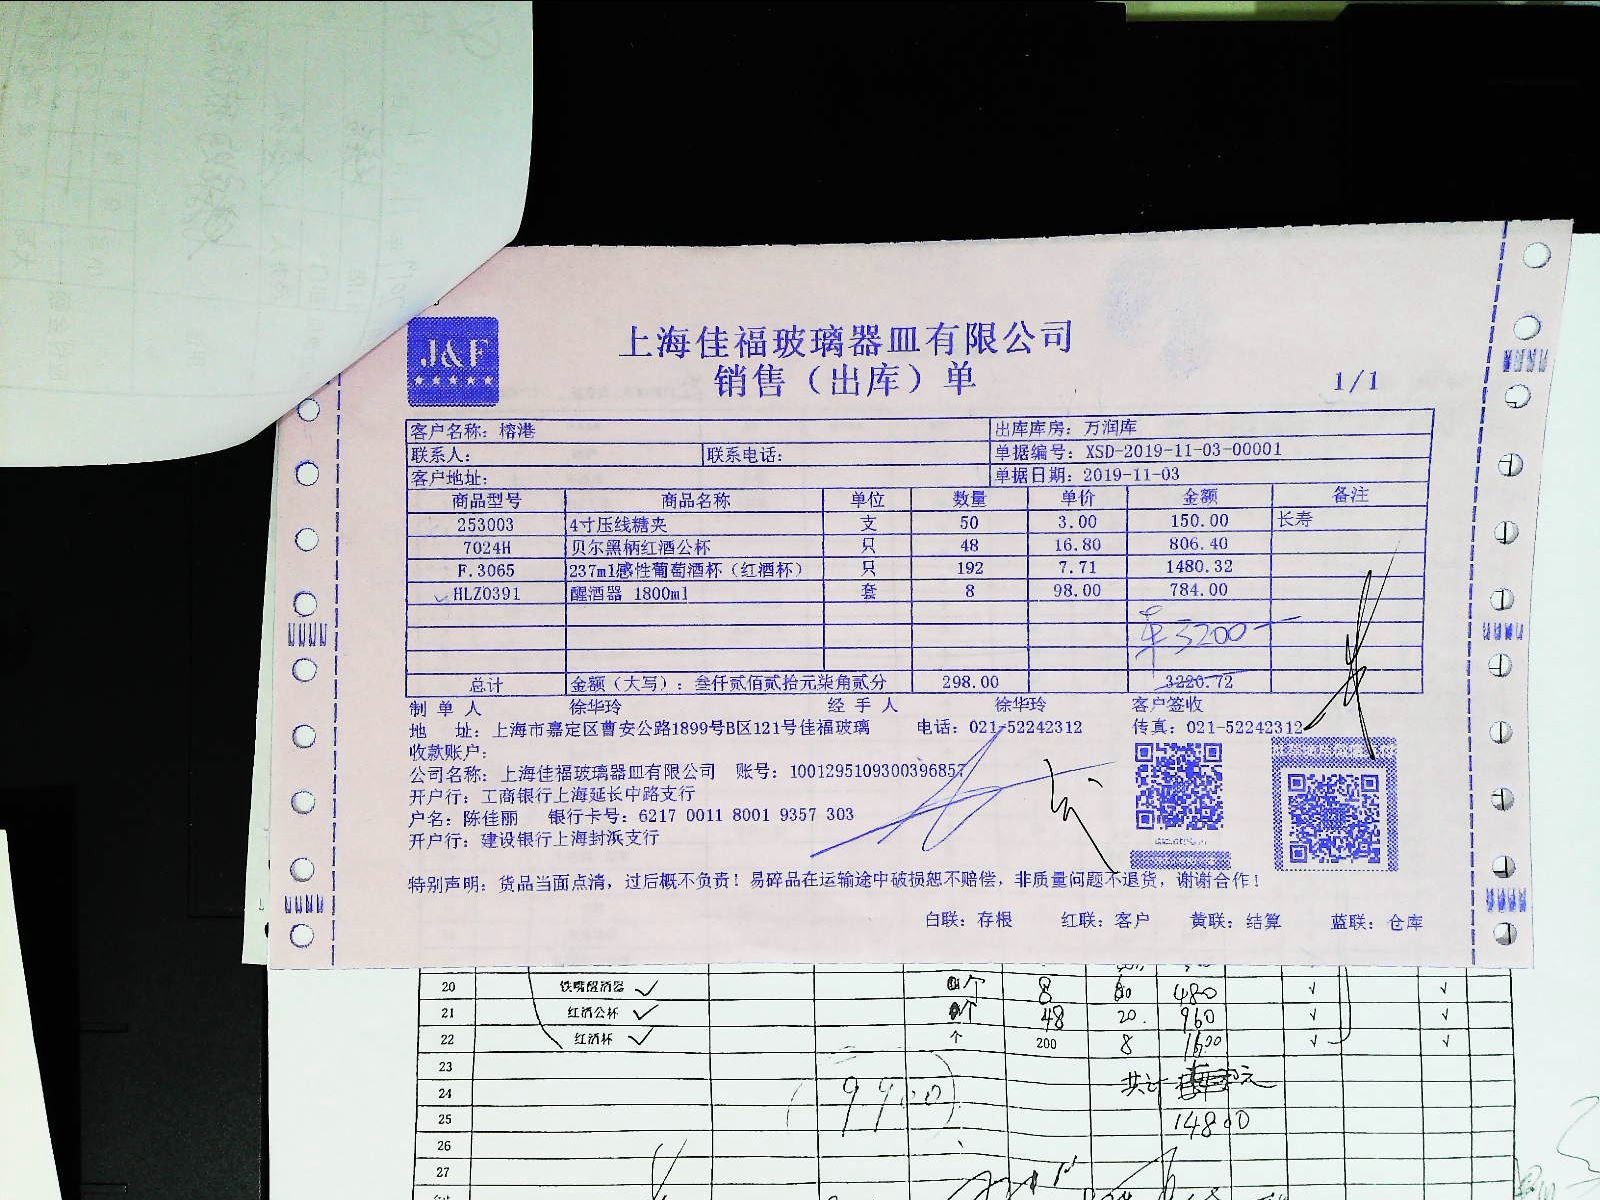 J&F
上海佳福玻璃器皿有限公司
销售（出库）单
1/1
客户名称：榕港 出库库房：万润库
联系人： 联系电话： 单据编号：XSD-2019-11-03-00001
客户地址： 单据日期：2019-11-03
商品型号 商品名称 单位 数量 单价 金额 备注
253003 4寸压线糖夹 支 50 3.00 150.00 长寿
7024H 贝尔黑柄红酒公杯 只 48 16.80 806.40
F.3065 237ml感性葡萄酒杯（红酒杯） 只 192 7.71 1480.32
HLZ0391 醒酒器 1800ml 套 8 98.00 784.00
3200
总计 金额（大写）：叁仟贰佰贰拾元柒角贰分 298.00 3220.72
制单人 徐华玲 经手人 徐华玲 客户签收
地 址：上海市嘉定区曹安公路1899号B区121号佳福玻璃 电话：021-52242312 传真：021-52242312
收款账户：
公司名称：上海佳福玻璃器皿有限公司 账号：1001295109300396857
开户行：工商银行上海延长中路支行
户名：陈佳丽 银行卡号：6217 0011 8001 9357 303
开户行：建设银行上海封浜支行
特别声明：货品当面点清，过后概不负责！易碎品在运输途中破损恕不赔偿，非质量问题不退货，谢谢合作！
白联：存根 红联：客户 黄联：结算 蓝联：仓库
20 铁嘴醒酒器 ✓ 个 8 60 480 √ √
21 红酒公杯 ✓ 个 48 20. 960 √ √
22 红酒杯 ✓ 个 200 8 1600 √ √
23
24 共计 元
25 14800
26
27